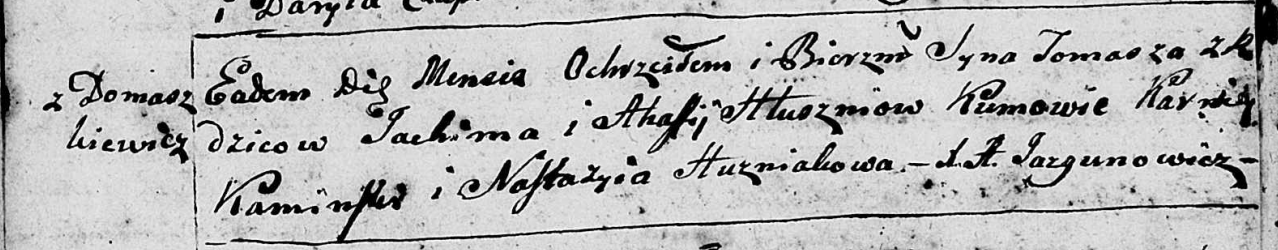 i Daryia
z Domasz
kiewicz
Eadem Die Mensis Ochrzciłem i Bierzm Syna Tomasza z R
dzicow Jachima i Ahafij Hłuszniow Kumowie Karniey
Kaminski i Nastazyia Huzniakowa – X. A. Jazgunowicz –